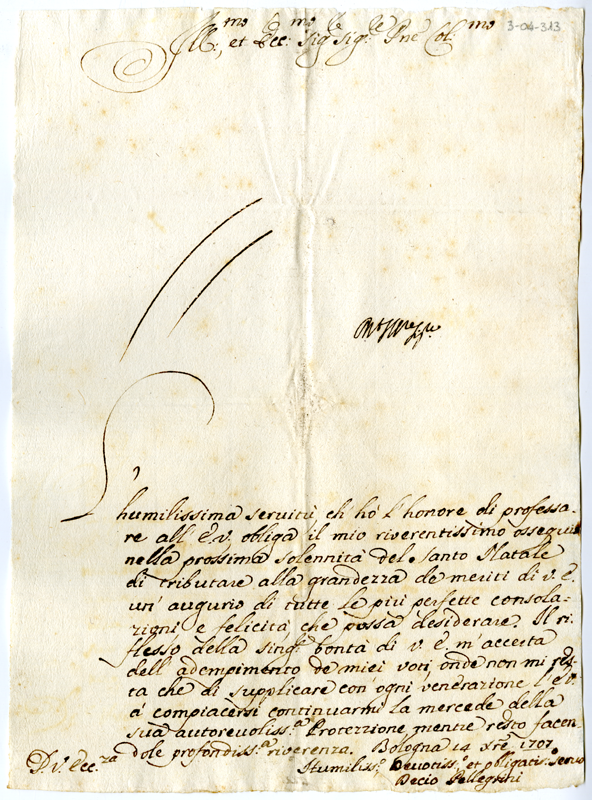 Ill.mo, et Ecc.mo Sig.re Sig.re Pne Col.mo
3-04-313
L'
humilissima servitù ch' ho' l'honore di professa-
re all' E.V. obliga il mio riverentissimo ossequio
nella prossima solennità del Santo Natale
di tributare alla grandezza de meriti di V. E.
un' augurio di tutte le più perfette consola-
zioni e felicità che possa desiderare. Il ri-
flesso della sing.r bontà di V. E. m'accerta
dell' adempimento de miei voti, onde non mi res-
ta che di supplicare con ogni venerazione l'E.V.
à compiacersi continuarmi la mercede della
sua autorevoliss.a Protezzione mentre resto facen-
dole profondiss.a riverenza. Bologna 14 Xre 1707
D. V. Ecc.za
Humiliss.o Devotiss.o et obligatis.o servo
Decio Pellegrini